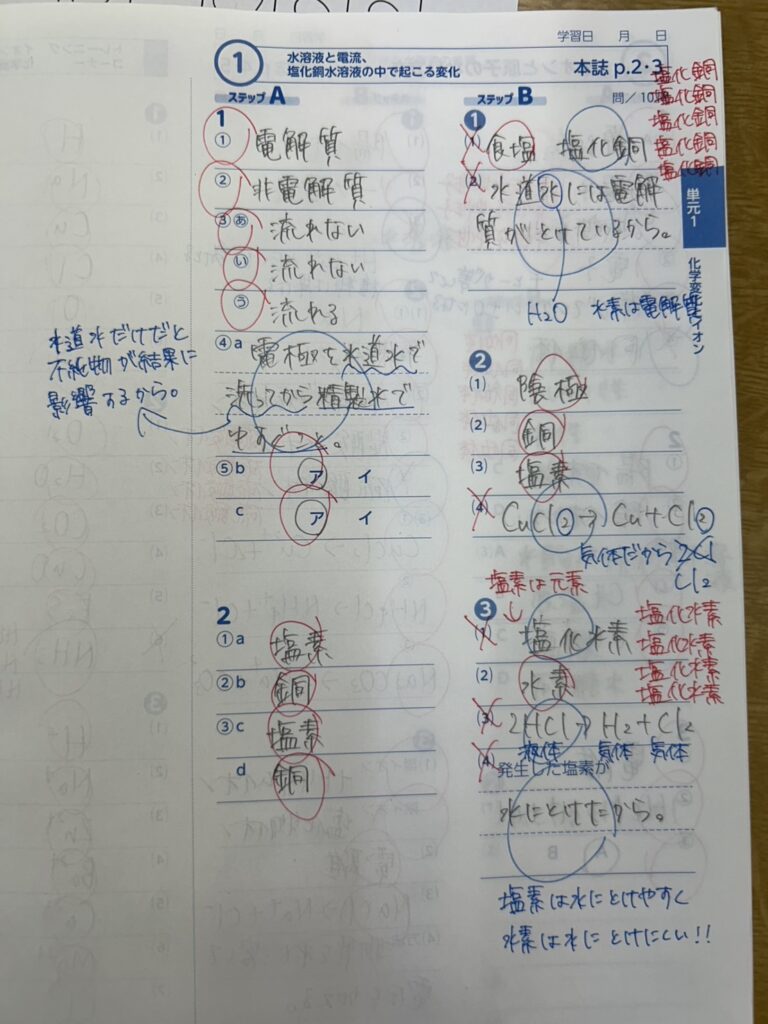 学習日　月　日
1 水溶液と電流、
塩化銅水溶液の中で起こる変化
本誌 p.2・3
ステップA
1
① 電解質
② 非電解質
③ あ 流れない
い 流れない
う 流れる
④ a 電極を水道水で
洗ってから精製水で
ゆすぐこと。
水道水だけだと
不純物が結果に
影響するから。
⑤ b ア イ
c ア イ
2
① a 塩素
② b 銅
③ c 塩素
d 銅
ステップB
問/10問
塩化銅
塩化銅
塩化銅
塩化銅
塩化銅
1
(1) 食塩 塩化銅
(2) 水道水には電解
質がとけているから。
H₂O 水素は電解質
2
(1) 陰極
(2) 銅
(3) 塩素
(4) CuCl₂→Cu+Cl₂
気体だから2Cl
Cl₂
塩素は元素
3
(1) 塩化水素
塩化水素
塩化水素
塩化水素
塩化水素
(2) 水素
(3) 2HCl→H₂+Cl₂
液体 気体 気体
(4) 発生した塩素が
水にとけたから。
塩素は水にとけやすく
水素は水にとけにくい!!
単元1
化学変化とイオン